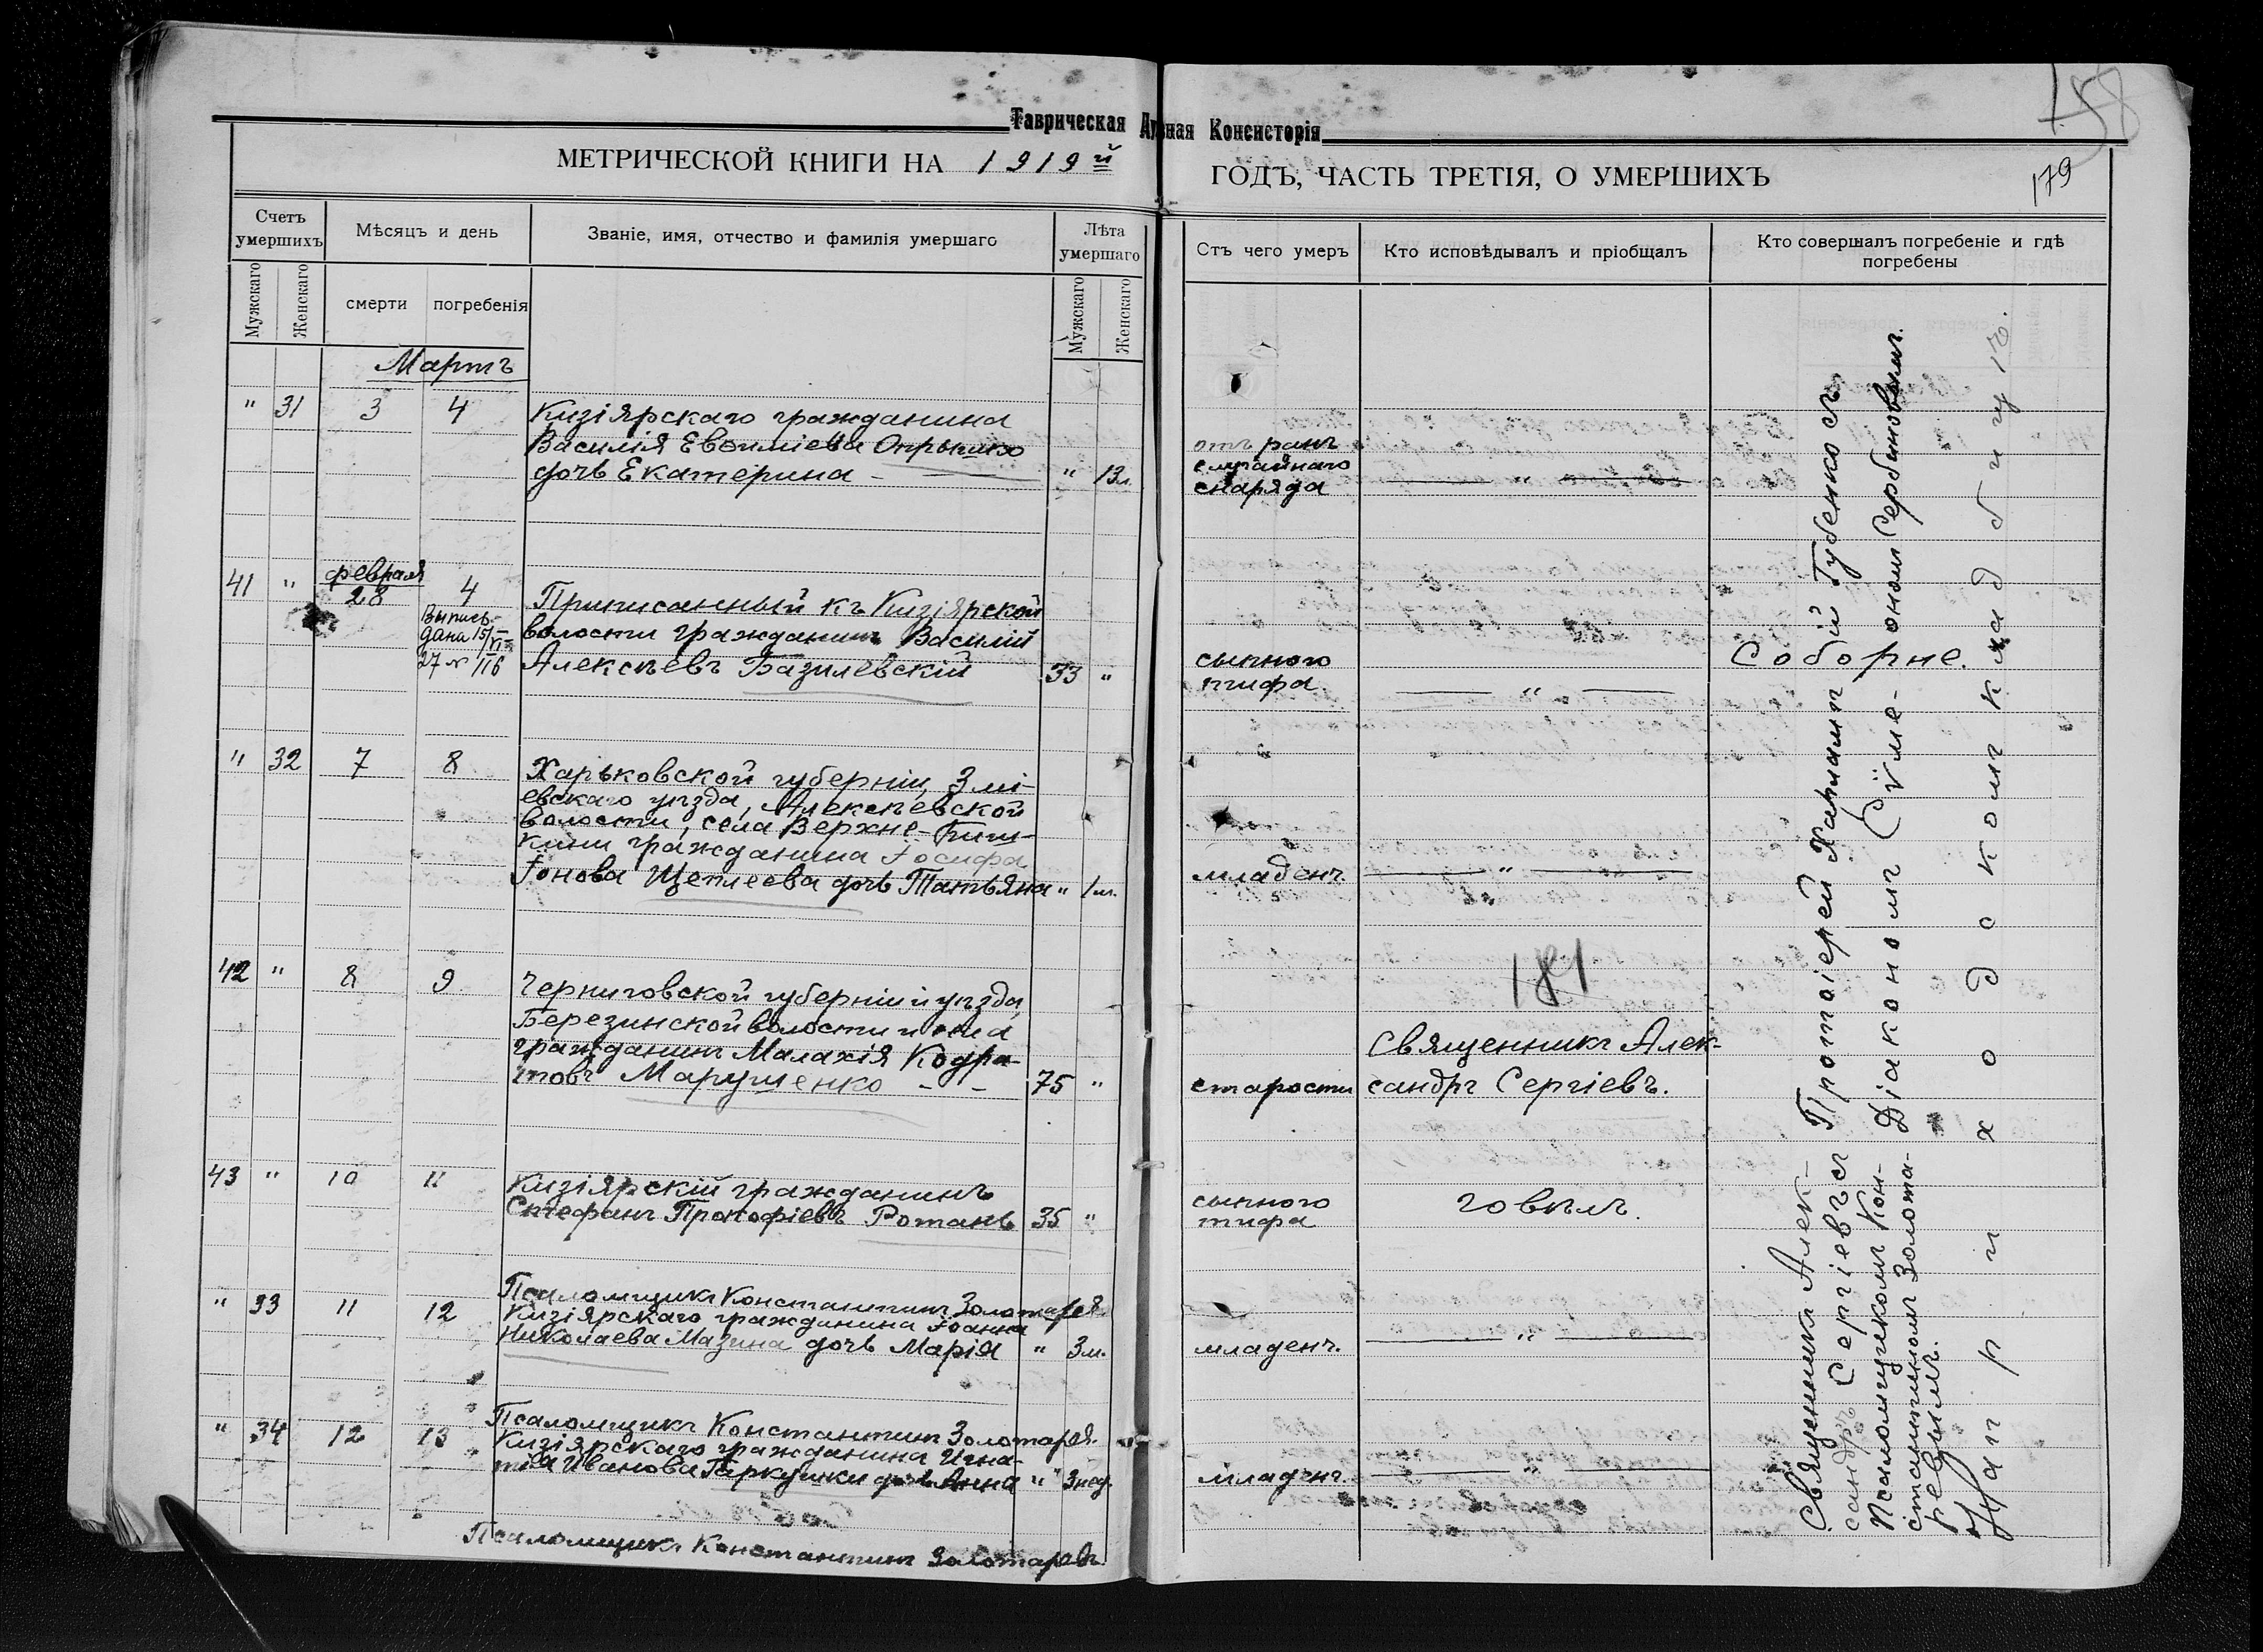 Таврическая Духовная Консисторія
МЕТРИЧЕСКОЙ КНИГИ НА 1919й
ГОДЪ, ЧАСТЬ ТРЕТІЯ, О УМЕРШИХЪ
158
179
Счетъ умершихъ
Мѣсяцъ и день
Званіе, имя, отчество и фамилія умершаго
Лѣта умершаго
Мужскаго
Женскаго
смерти
погребенія
Мужскаго
Женскаго
Отъ чего умеръ
Кто исповѣдывалъ и пріобщалъ
Кто совершалъ погребеніе и гдѣ
погребены
Мартъ
" 31 3 4 Кизіярскаго гражданина
Василія Евфиміева
дочь Екатерина - " 13л.
отъ ранъ
случайнаго
снаряда "
41 " февраля
28 4
Выпись
дана 15/II
27 № 116
Приписанный къ Кизіярской
волости гражданинъ Василій
Алексѣевъ Базилевскій 33 "
сыпного
тифа "
" 32 7 8 Харьковской губерніи, Змі-
евскаго уѣзда, Алексѣевской
волости, села Верхне-Биш-
кини гражданина Іосифа
Іонова Щеплеева дочь Татьяна " 1м.
младенч. "
181
42 " 8 9 Черниговской губерніи и уѣзда,
Березинской волости и села
гражданинъ Малахія Кодра-
товъ Марущенко - - 75 "
старости
Священникъ Алек-
сандръ Сергіевъ.
43 " 10 11 Кизіярскій гражданинъ
Стефанъ Прокофіевъ Ротань 35 "
сыпного
тифа
говѣлъ.
Псаломщикъ Константинъ Золотарев.
" 33 11 12 Кизіярскаго гражданина Іоанна
Николаева Мазина дочь Марія " 3м.
младенч. "
Псаломщикъ Константинъ Золотарев.
" 34 12 13 Кизіярскаго гражданина Игна-
тія Иванова Гаркушки дочь Анна " 3нед.
младенч. "
Псаломщикъ Константинъ Золотаревъ
Соборне.
Священникъ Алек-
сандръ Сергіевъ съ
Протоіерей Харламп Губенко съ
Псаломщикомъ Кон-
стантиномъ Золота-
ревымъ.
Діакономъ Сѵме-
ономъ Сербиновымъ.
На приходскомъ кладбищѣ.